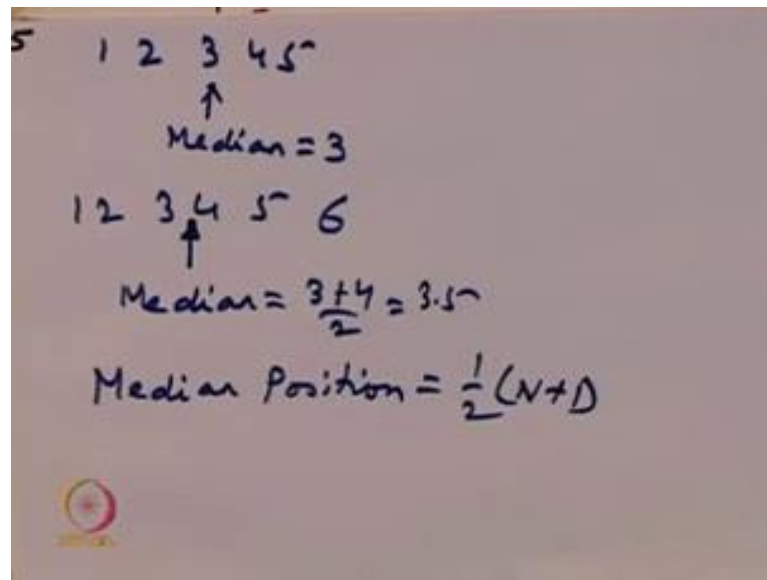 5 1 2 3 4 5
Median = 3
1 2 3 4 5 6
Median = 3+4/2 = 3.5
Median Position = 1/2 (N+1)